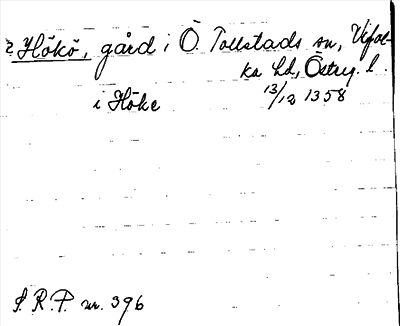 ? Hökö, gård i Ö. Tollstads sn, Vifol-
ka hd, Österg. l.
i Höke 13/12 1358
S. R. P. nr. 396